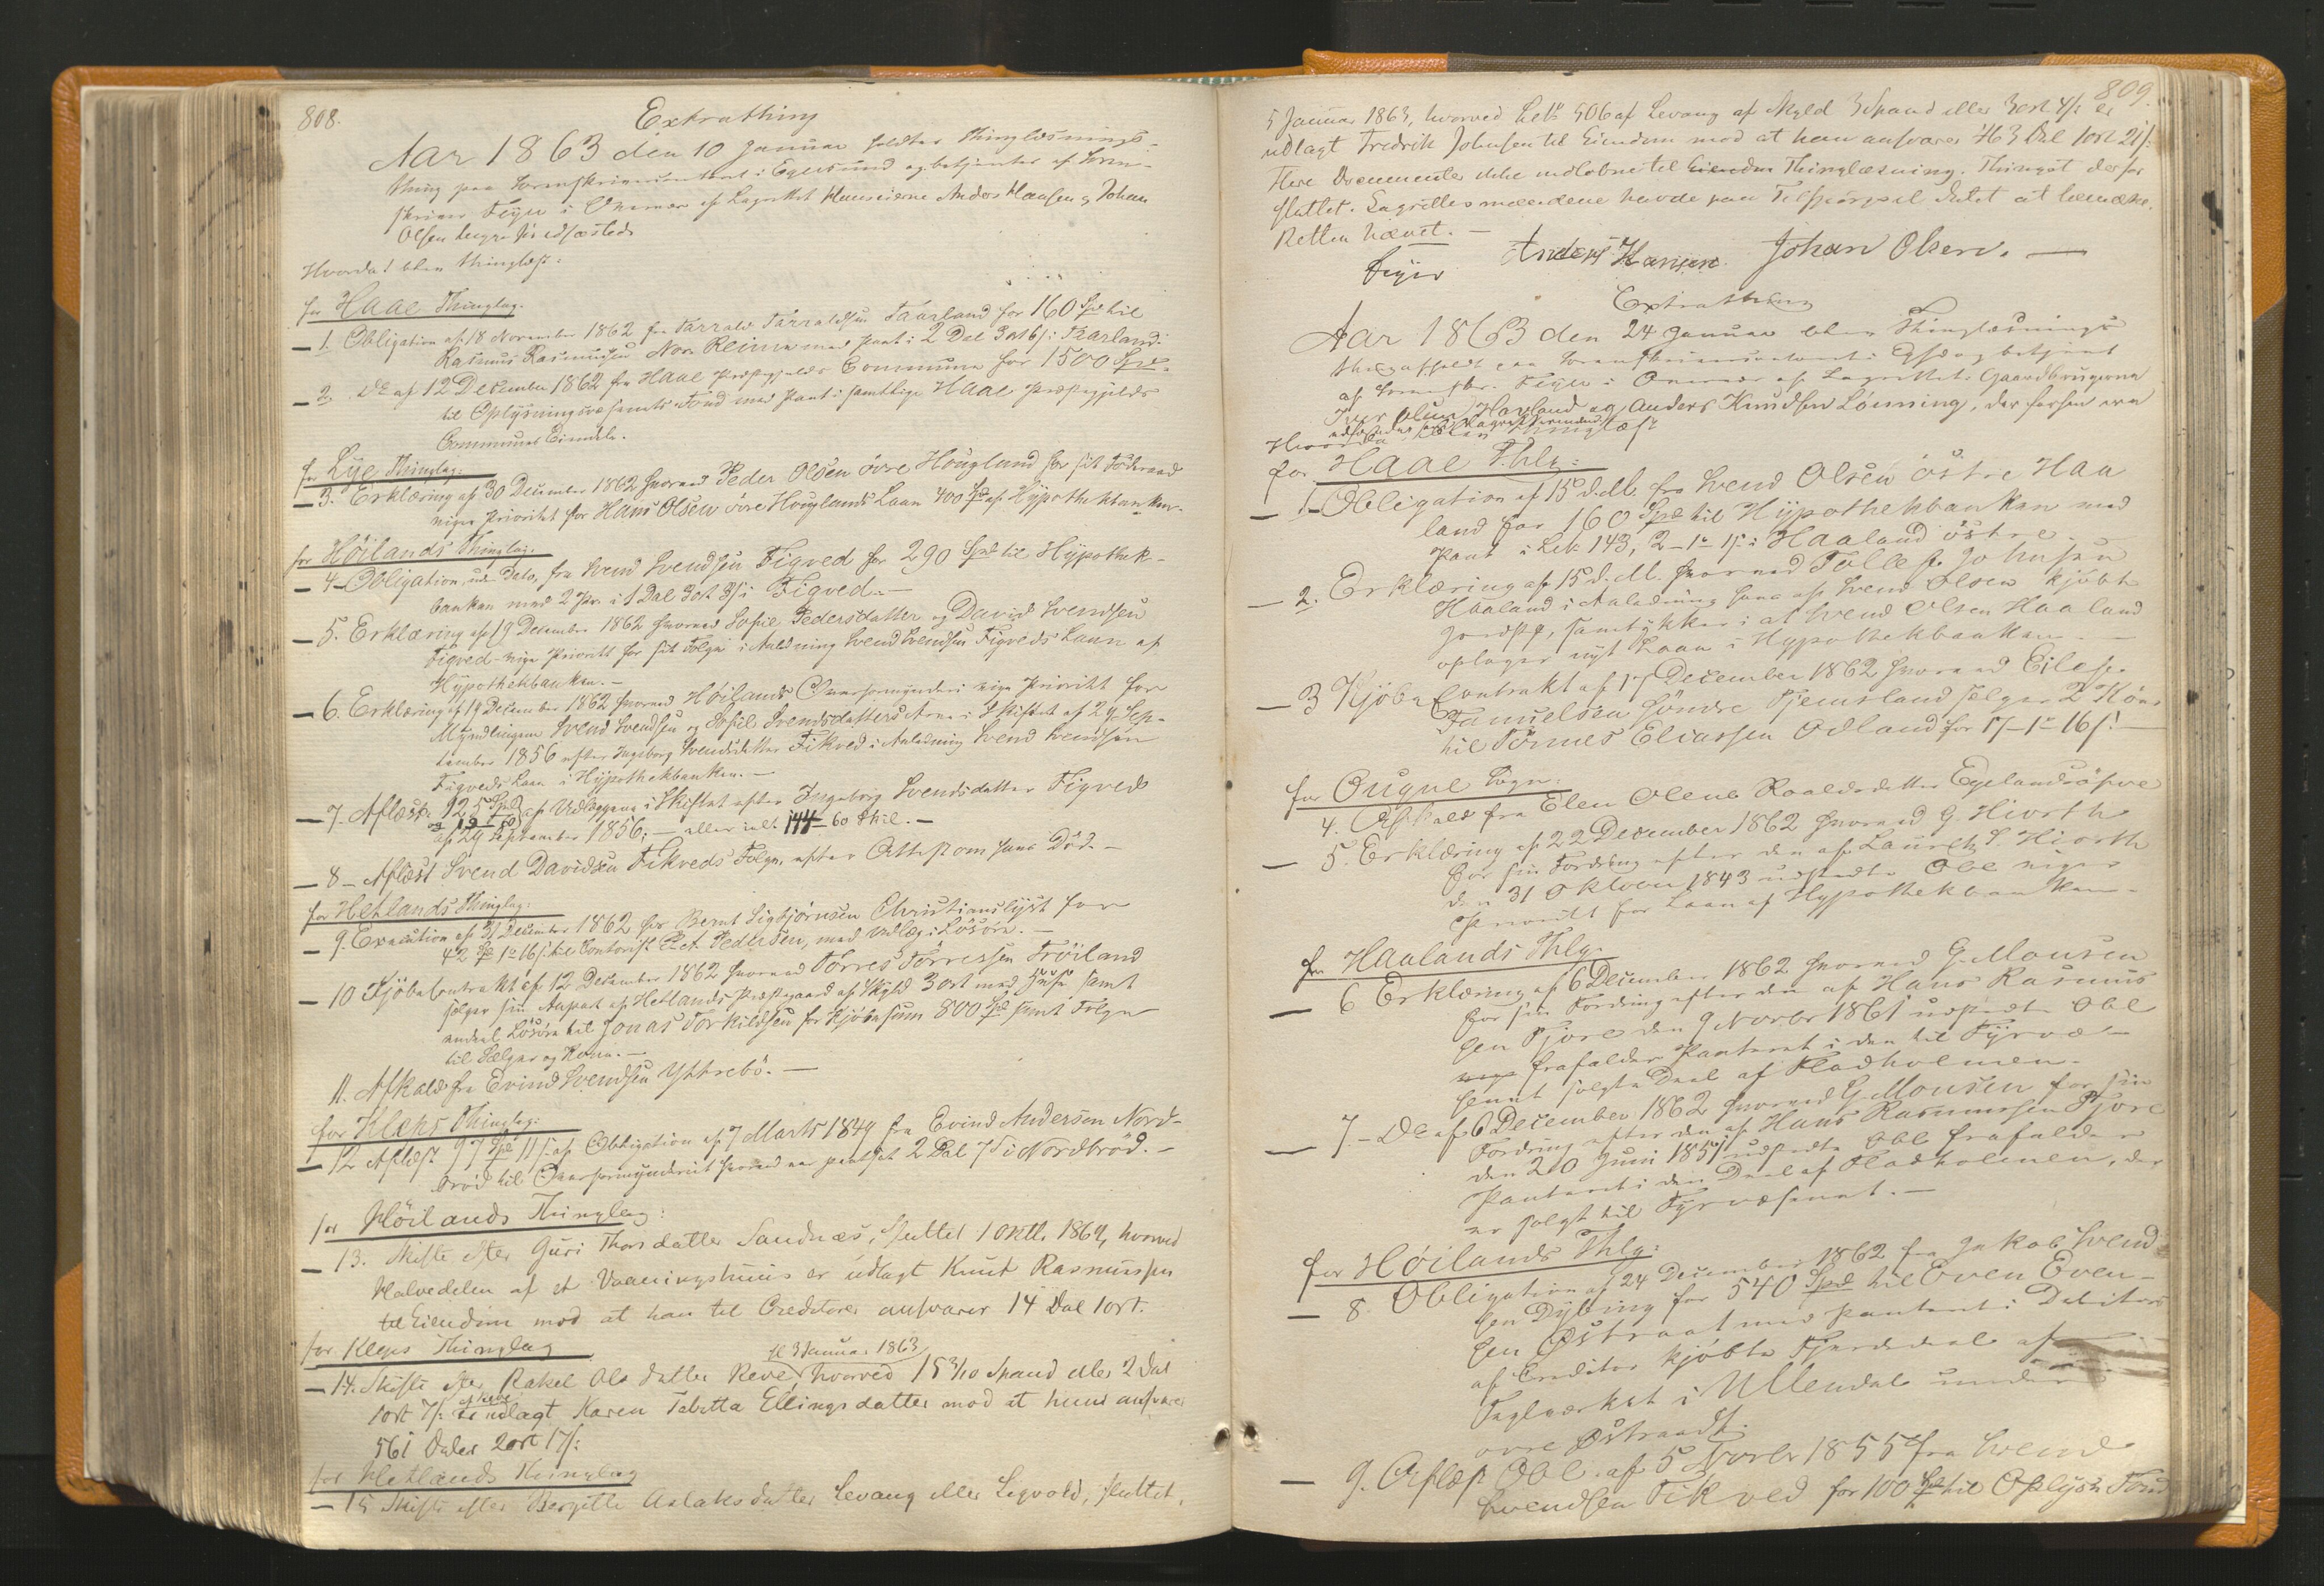 808.
Extrathing
Aar 1863 den 10 Januar holdtes Thinglæsnings-
thing paa Sorenskrivercontoret i Egersund og betjentes af Soren-
skriver Feyer i Overvær af Lagrettet Huuseierne Anders Hansen og Johan
Olsen begge før edfæstede
Hvorda blev thinglæst:
for Haae Thinglag.
1. Obligation af 18 November 1862 fra Tarrald Tarraldsen Taarland for 160 Spd til
Rasmus Rasmussen Nore Reime med Pant i 2 Dal 3 ort 6 s i Taarland.
2. Do af 12 December 1862 fra Haae Præstegjelds Commune for 1500 Spd
til Oplysningsvæsenets Fond med Pant i samtlige Haae Præstegjelds
Communes Eiendele.
for Lye Thinglag:
3. Erklæring af 30 December 1862 hvorved Peder Olsen övre Houglund for sit Föderaad
viger Prioritet for Hans Olsen övre Houglunds Laan 400 Spd af Hypothekbanken.
for Höilands Thinglag.
4. Obligation, uden Dato, fra Svend Svendsen Figved for 290 Spd til Hypothek-
banken med 2 Pr. i 1 Dal 3 ort 8 s i Figved.
5. Erklæring af 19 December 1862 hvorved Sofie Pedersdatter og David Svendsen
Figved vige Prioritet for sit Folge i Anledning Svend Svendsen Figveds Laan af
Hypothekbanken.
6. Erklæring af 19 December 1862 hvorved Höilands Overformynderi vige Prioritet for
Myndlingene Svend Svendsen og Sofie Svendsdatters Arv i Skiftet af 29 Sep-
tember 1856 efter Ingeborg Svendsdatter Fikved i Anledning Svend Svendsen
Figveds Laan i Hypothekbanken.
7. Aflæst 125 Spd af Udlæggene i Skiftet efter Ingeborg Svendsdatter Figved
af 29 September 1856; eller ialt 144 - 60 Skil.
8 Aflæst Svend Davidsen Fikveds Folge, efter Attest om hans Död.
for Hetlands Thinglag:
9. Execution af 31 December 1862 hos Bernt Sigbjörnsen Christianslyst for
42 Sp 1 o 16 s til Contorist Pedersen, med Udlæg i Lösöre.
10 Kjöbecontrakt af 12 December 1862 hvorved Törres Törressen Fröiland
sælger sin Anpart af Hetlands Præstegaard af Skyld 3 ort med Huse samt
endeel Lösöre til Jonas Torkildsen for Kjöbesum 800 Spd samt Folge
til Sælger og Kone.
11. Afkald fra Evind Svendsen Yttrebö.
for Kleps Thinglag:
12 Aflæst 97 Spd 11 s af Obligation af 7 Marts 1849 fra Evind Andersen Nord-
bröd til Overformynderiet hvorved var pantsat 2 Dal 7 s i Nordbröd.
for Höilands Thinglag:
13. Skifte efter Guri Thorsdatter Sandnæs, sluttet 1 Oktb. 1862, hvorved
Halvedelen af et Vaaningshuus er udlagt Knut Rasmussen
til Eiendom mod at han til Creditorer ansvarer 14 Dal 1 ort.
for Kleps Thinglag
sl 3 Januar 1863
14. Skifte efter Rakel Olsdatter Reve, hvorved 15 3/10 Spand eller 2 Dal
1 ort 7 s af Reve er udlagt Karen Tabitta Ellingsdatter mod at hun ansvarer
561 Daler 2 ort 17 s:
for Hetlands Thinglag
15 Skifte efter Bergitte Aslaksdatter Levang eller Sigvold, sluttet,
809.
5 Januar 1863, hvorved Lb No 506 af Levang af Skyld 3 Spand eller 3 ort 4 s er
udlagt Fredrik Johnsen til Eiendom mod at han ansvarer 463 Dal 1 ort 21 s.
Flere Documenter ikke indlobne til Thinglæsning. Thinget derfor
sluttet. Lagrettesmændene havde paa Tilspörgsel Intet at bemærke.
Retten hævet.
Feyer Anders Hansen Johan Olsen.
Extrathing
Aar 1863 den 24 Januar blev Thinglæsnings
thing afholdt paa Sorenskrivercontoret i Egsd og betjent
af Sorenskr. Feyer i Overvær af Lagrettet: Gaardbrugerne
Iver Olsen Hovland og Anders Knudsen Lönning, der forhen ere
edfæstede som Lagrettesmænd
Hvorda blev thinglæst
for Haae Thlg:
1. Obligation af 15 d. M. fra Svend Olsen östre Haa
land for 160 Spd til Hypothekbanken med
Pant i Lb. 143, 2 - 1 o 1 s i Haaland östre.
2. Erklæring af 15 d. M. hvorved Tollef Johnsen
Haaland i Anledning hans af Svend Olsen kjöbte
Jordst., samtykker i at Svend Olsen Haaland
optager nyt Laan i Hypothekbanken.
3 Kjöbe Contrakt af 17 December 1862 hvorved Eilef
Samuelsen söndre Tjemsland sælger 2 Köer
til Törres Eliassen Odland for 17 - 1 o 16 s.
for Ougne Sogn:
4. Afkald fra Elen Olene Roaldsdatter Egelandsöfre
5. Erklæring af 22 December 1862 hvorved G. Hiorth
for sin Fordring efter den af Lauritz S. Hiorth
den 31 Oktober 1843 udstedte Obl. viger
Prioritet for Laan af Hypothekbanken.
for Haalands Thlg.
6 Erklæring af 6 December 1862 hvorved G. Monsen
for sin Fordring efter den af Hans Rasmus
sen Tjore den 9 Novbr 1861 udstedte Obl
frafalder Panteret i den til Fyrvæ-
senet solgte Deel af Fladholmen.
7. Do af 6 December 1862 hvorved G. Monsen for sin
Fordring efter den af Hans Rasmussen Tjore
den 20 Juni 1857 udstedte Obl frafalder
Panteret i den Deel af Fladholmen, der
er solgt til Fyrvæsenet.
for Höilands Thlg:
8. Obligation af 24 December 1862 fra Jakob Svend
sen Dybing for 540 Spd til Even Even-
sen Östraat med Panteret i Debitors
af Creditor kjöbte Fjerdedeel af
Teglværket i Ullendal under
övre Östraadt.
9. Aflæst Obl. af 5 Novbr 1855 fra Svend
Svendsen Fikved for 100 Spd til Oplysn Fond